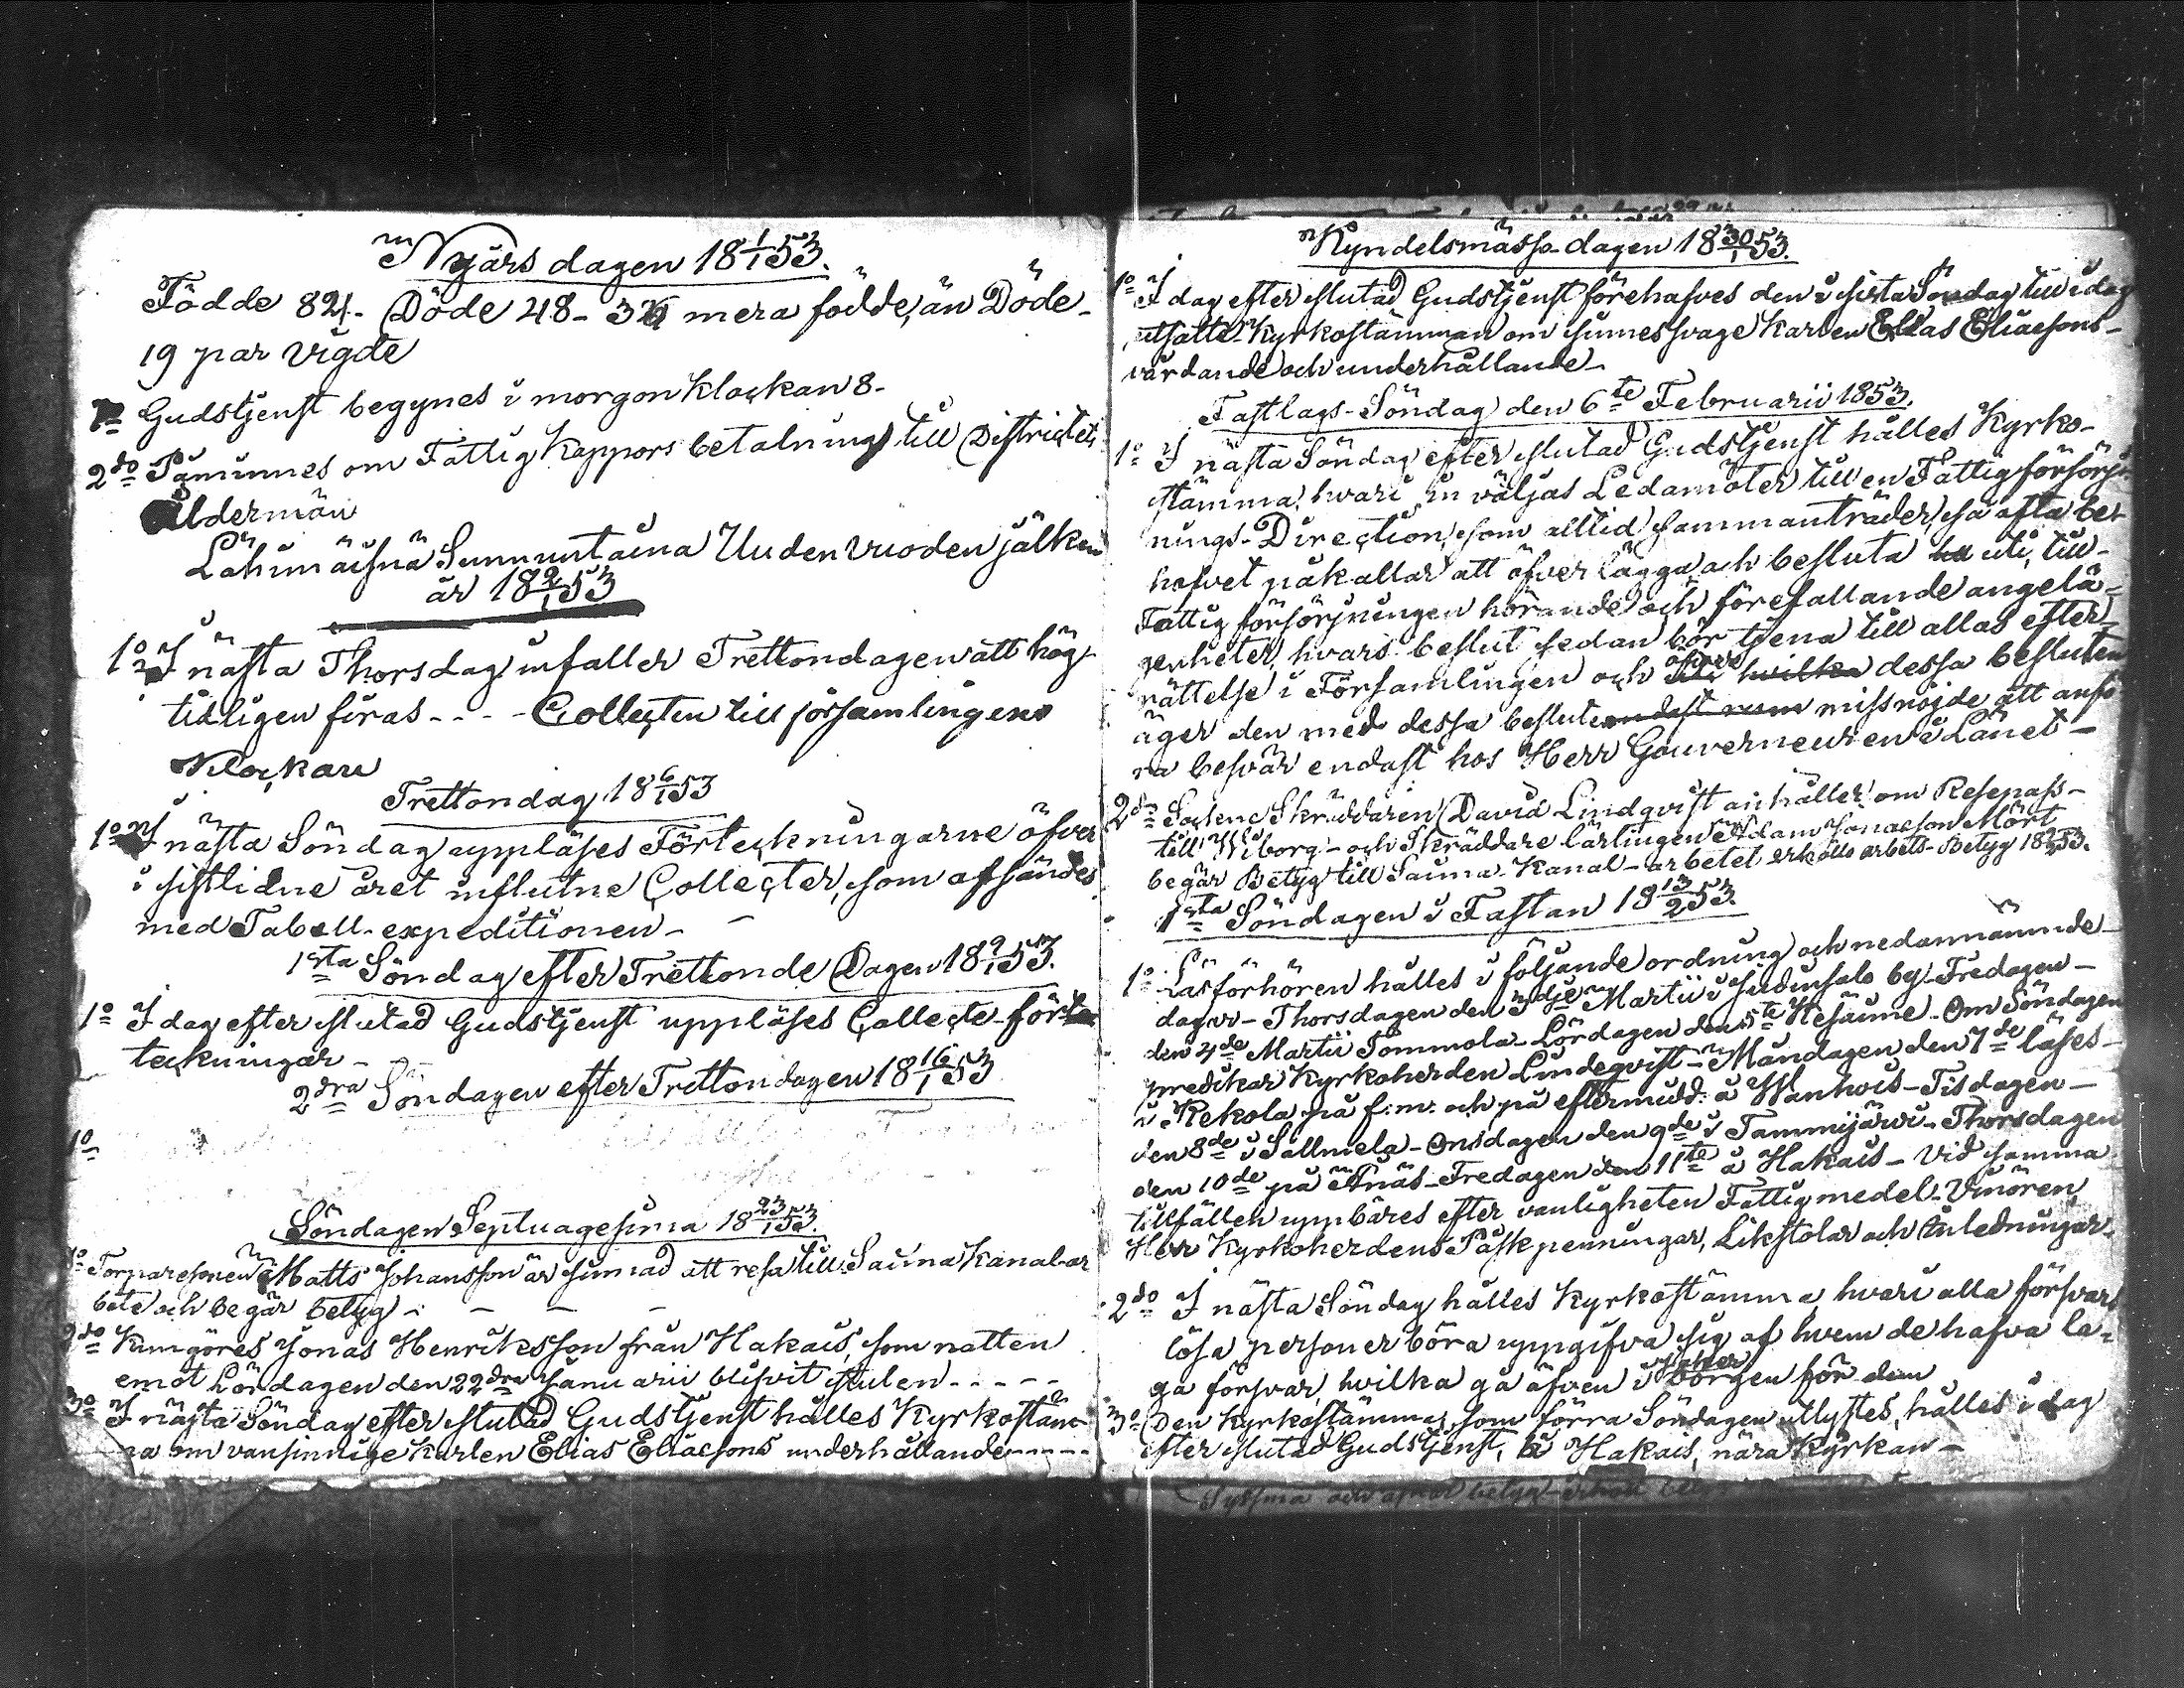 Nyårs dagen 18 1/1 53.
Födde 84. Döde 48 - 36 mera födde, än Döde -
19 par vigde
1o Gudstjenst begynes i morgon klockan 8 -
2do Påminnes om Fattig Kappors betalning till Districtets
Åldermän
Lähimäisnä Sunnuntaina Uuden vuoden jälken
är 18 2/1 53
1o I nästa Thorsdag infaller Trettondagen att hög-
tidligen firas - - - - Collecten till församlingens
Klockare
Trettondag 18 6/1 53
1o I nästa Söndag uppläses Förteckningarne öfver
i sistlidne året influtne Collecter, som afsändes
med Tabell-expeditionen -
1sta Söndag efter Trettonde Dagen 18 9/1 53.
1o I dag efter slutad Gudstjenst uppläses Collecte-förte
teckningar -
2dra Söndagen efter Trettondagen 18 16/1 53
1o
Söndagen Septuagesima 18 23/1 53.
1o Torparesonen Matts Johansson är sinnad att resa till Saima Kanal-ar
bete och begär betyg -
2do Kungöres Jonas Henriksson från Hakais, som natten
emot Lördagen den 22dra Januarii blifvit stulen - - - - -
3o I nästa Söndag efter slutad Gudstjenst hålles Kyrkostäm-
ma om vansinnige karlen Elias Eliaesons underhållande - - - - -
Kyndelsmässo-dagen 18 30/1 53.
1o I dag efter slutad Gudstjenst förehafves den i sista Söndag till i dag
utsatte Kyrkostämman om sinnessvage karlen Elias Eliaesons -
vårdande och underhållande -
Fastlags-Söndag den 6te Februarii 1853.
1o I nästa Söndag efter slutad Gudstjenst hålles Kyrko-
stämma, hvari nu väljas Ledamöter till en Fattigförsörj-
nings-Direction, som alltid sammanträder, så ofta be-
hofvet påkallar att öfverlägga och besluta uti, till
Fattigförsörjningen hörande och förefallande angelä-
genheter, hvars beslut sedan bör tjena till allas efter-
rättelse i Församlingen och öfver hvilka dessa besluten
äger den med dessa besluten endast missnöjde att anfö
ra besvär endast hos Herr Gouverneuren i Länet -
2do Sockne Skräddaren David Lindqvist anhåller om Resepass -
till Wiborg - och Skräddare lärlingen Adam Jonaeson Mört
begär Betyg till Saima-Kanal-arbetet erhölls arbets-Betyg 18 53.
1sta Söndagen i Fastan 18 13/2 53.
1o Läsförhören hålles i följande ordning och nedannämnde
dagar - Thorsdagen den 3dje Martii i by - Fredagen -
den 4de Martii Sommola - Lördagen den 5te - Om Söndagen
predikar Kyrkoherden Lindeqvist - Måndagen den 7de läses -
i Rekola på f:m: och på eftermidd: å Wanhois - Tisdagen -
den 8de i Sallmela - Onsdagen den 9de i Tammijärwi - Thorsdagen
den 10de på - Fredagen den 11te å Hakais - Vid samma
tillfällen uppbäres efter vanligheten Fattigmedel -
Herr Kyrkoherdens Påskpenningar, Likstolar och Inledningar.
2do I nästa Söndag hålles Kyrkostämma, hvari alla försvars
lösa personer böra uppgifva sig af hvem de hafva la-
ga försvar, hvilka gå äfven i säker borgen för dem
3o Den Kyrkostämma, som förra Söndagen utlystes, hålles i dag
efter slutad Gudstjenst, å Hakais, nära Kyrkan -